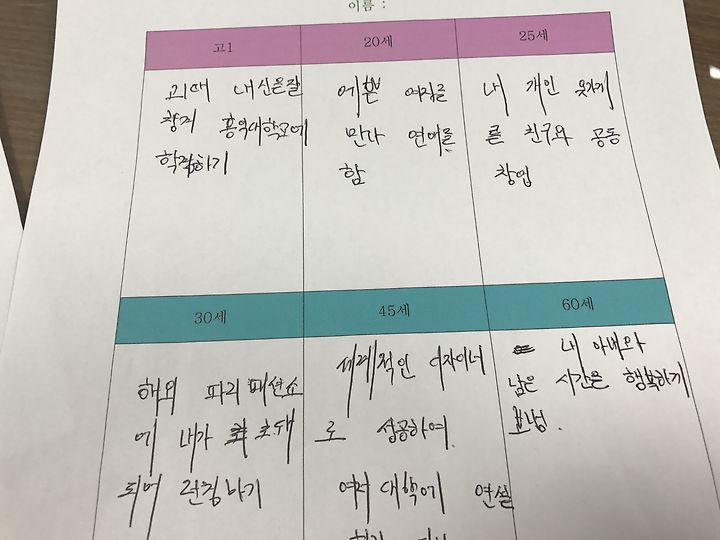 이름 :
고1 20세 25세
고1때 내신은잘
챙겨 홍익대학교에
합격하기
예쁜 여친을
만나 연애를
함
내 개인 옷가게
를 친구와 공동
창업
30세 45세 60세
해외 파리 패션쇼
에 내가 초대
되어 런칭하기
세계적인 디자이너
로 성공하여
여러 대학에 연설
내 아내와
남은 시간은 행복하게
보냄.